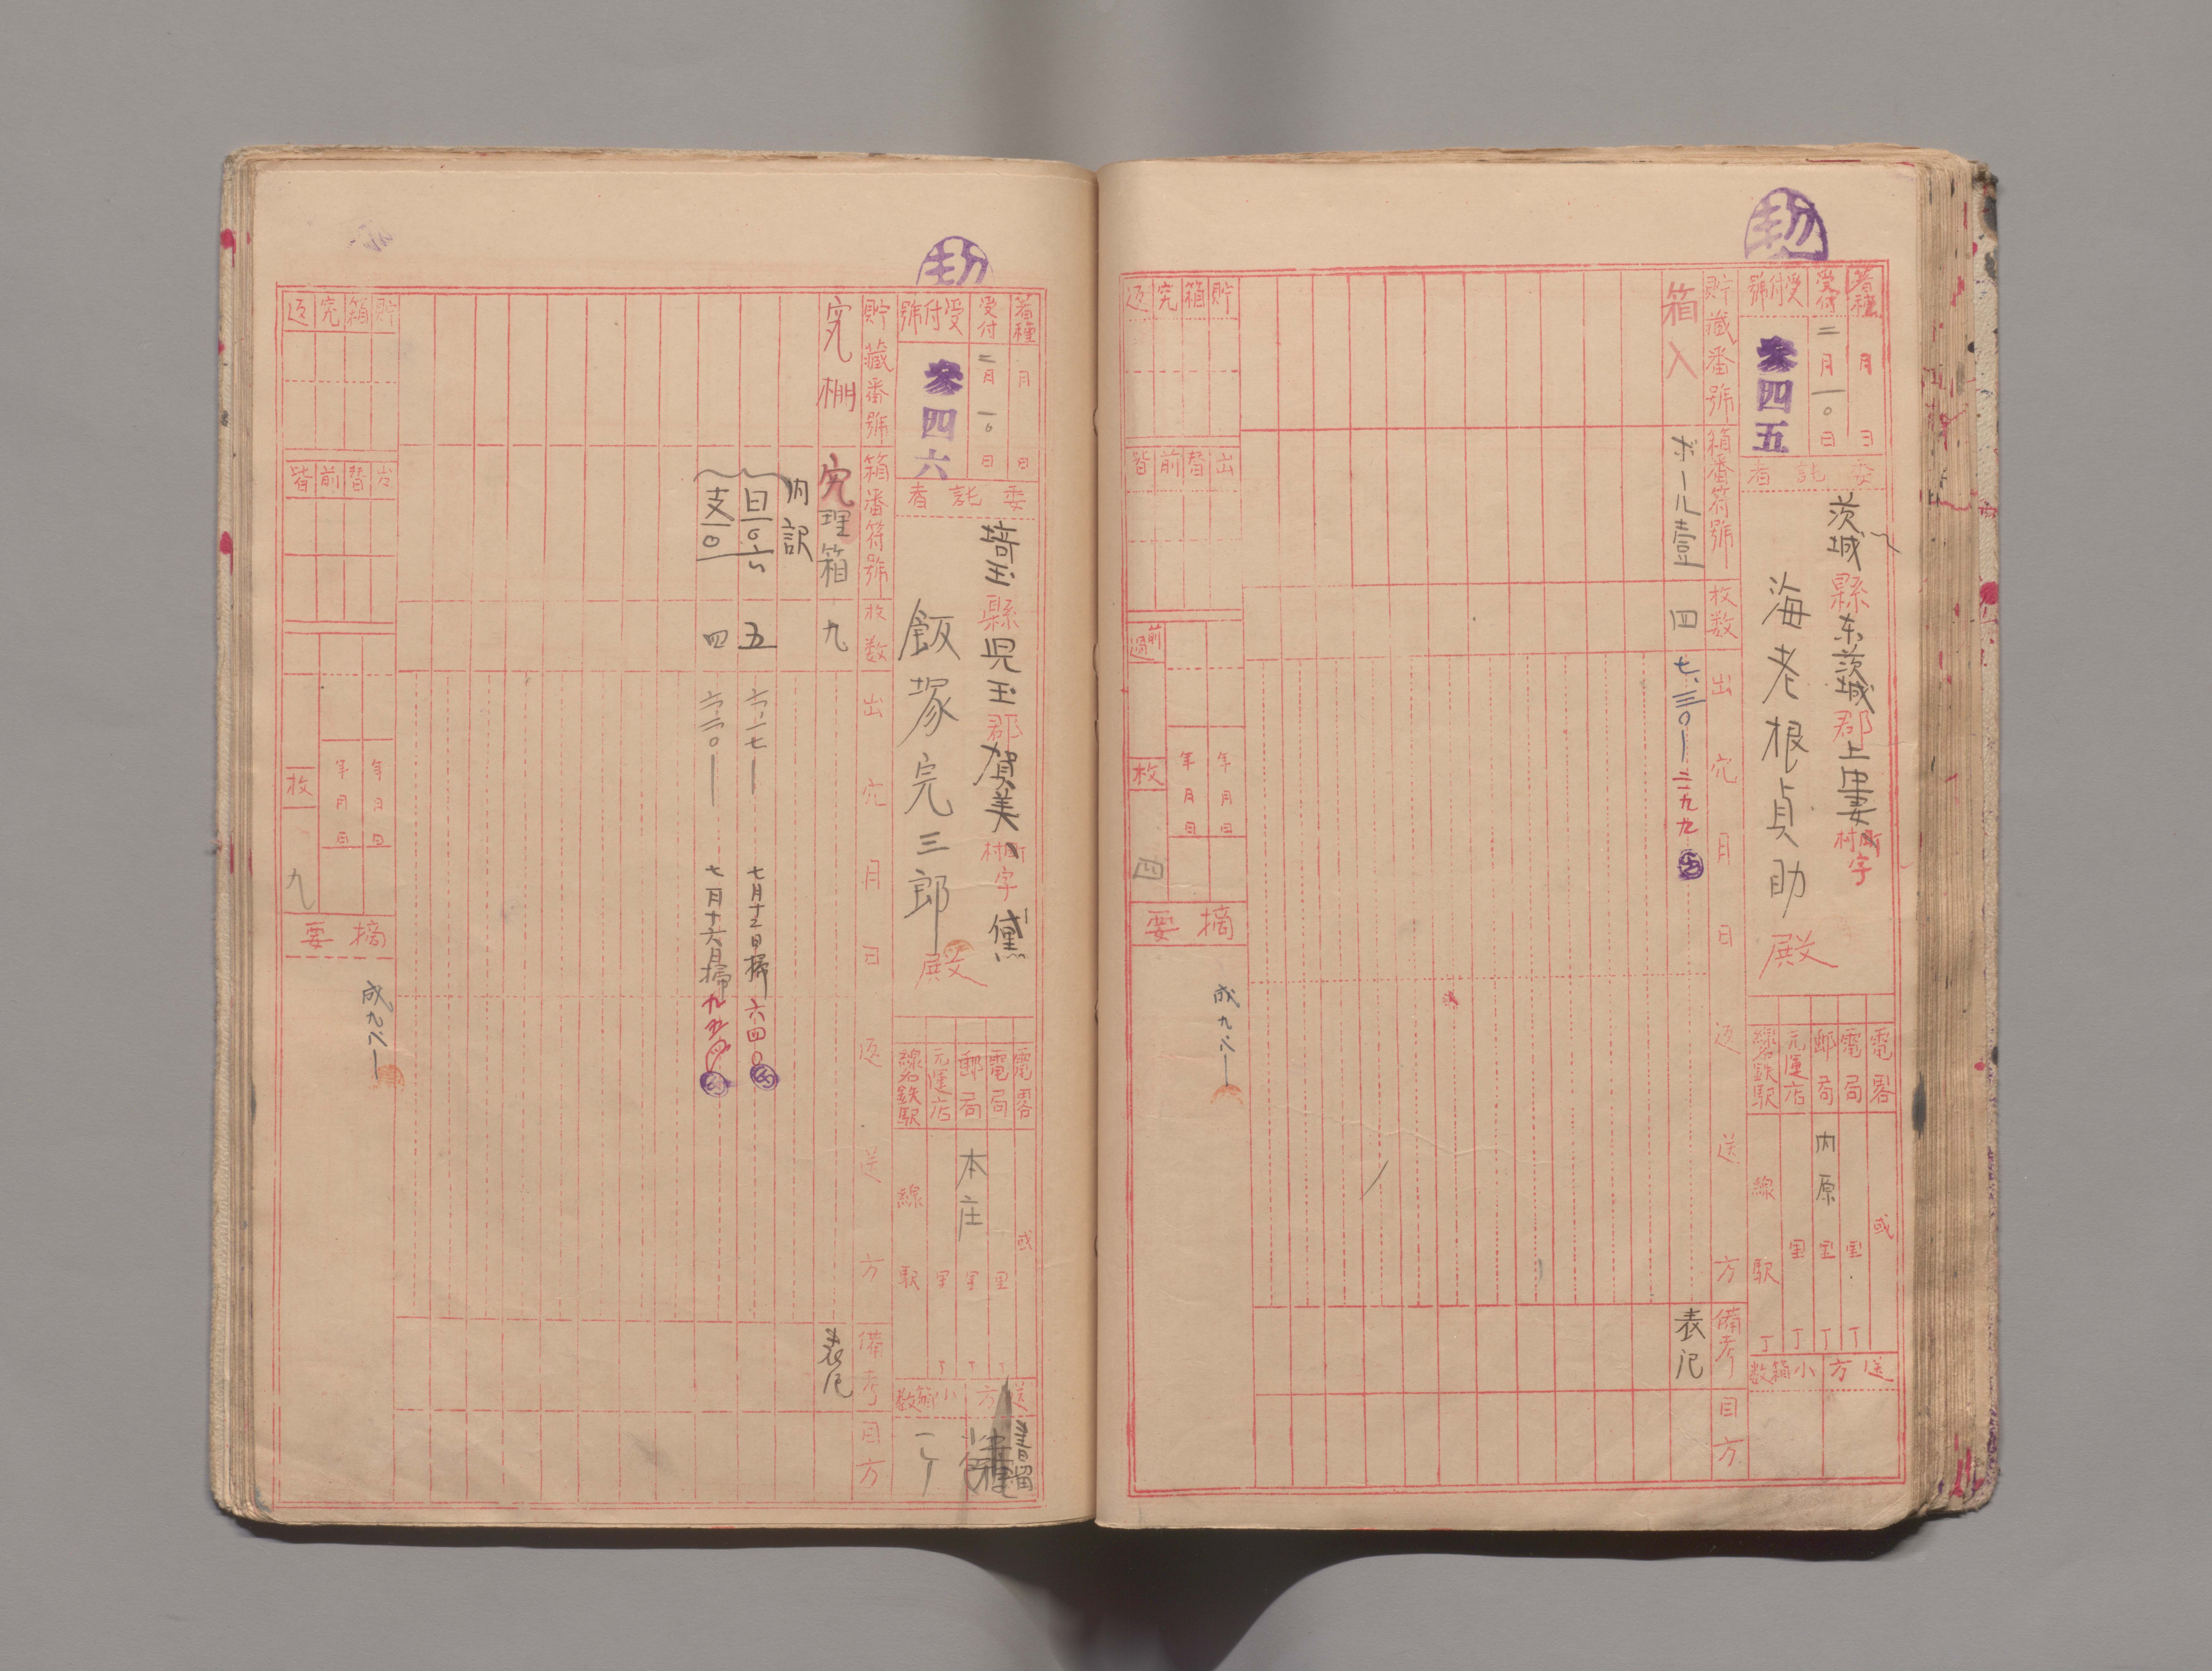 着種 月 日
受付 二月一〇日
受付號 参四五
委託者
茨城縣东茨城郡上中妻町村字
海老根貞助殿
電畧 或
電局 里 丁
郵局 内原 里 丁
元運店 里 丁
線名鉄駅 線 駅 丁
送方
小箱數
貯藏番號
箱番符號
枚数
出穴月日
返送方
備考
目方
箱入
ボール壹
四
七、三〇ー
二九九
表记
貯箱究返
出替前皆
前過
年月日
年月日
枚
四
摘要
着種 月 日
受付 二月一〇日
受付號 参四六
委託者
埼玉縣児玉郡賀美町村字黛
飯塚完三郎殿
電畧 或
電局 里 丁
郵局 本庄 里 丁
元運店 里 丁
線名鉄駅 線 駅
送方
書留
小箱數
貯藏番號
箱番符號
枚数
出穴月日
返送方
備考
目方
究棚
究理箱
九
表记
内訳
日一〇六
五
六、一七ー
六四〇
支一〇
四
六、二〇ー
貯箱究返
出替前皆
年月日
年月日
枚
九
摘要